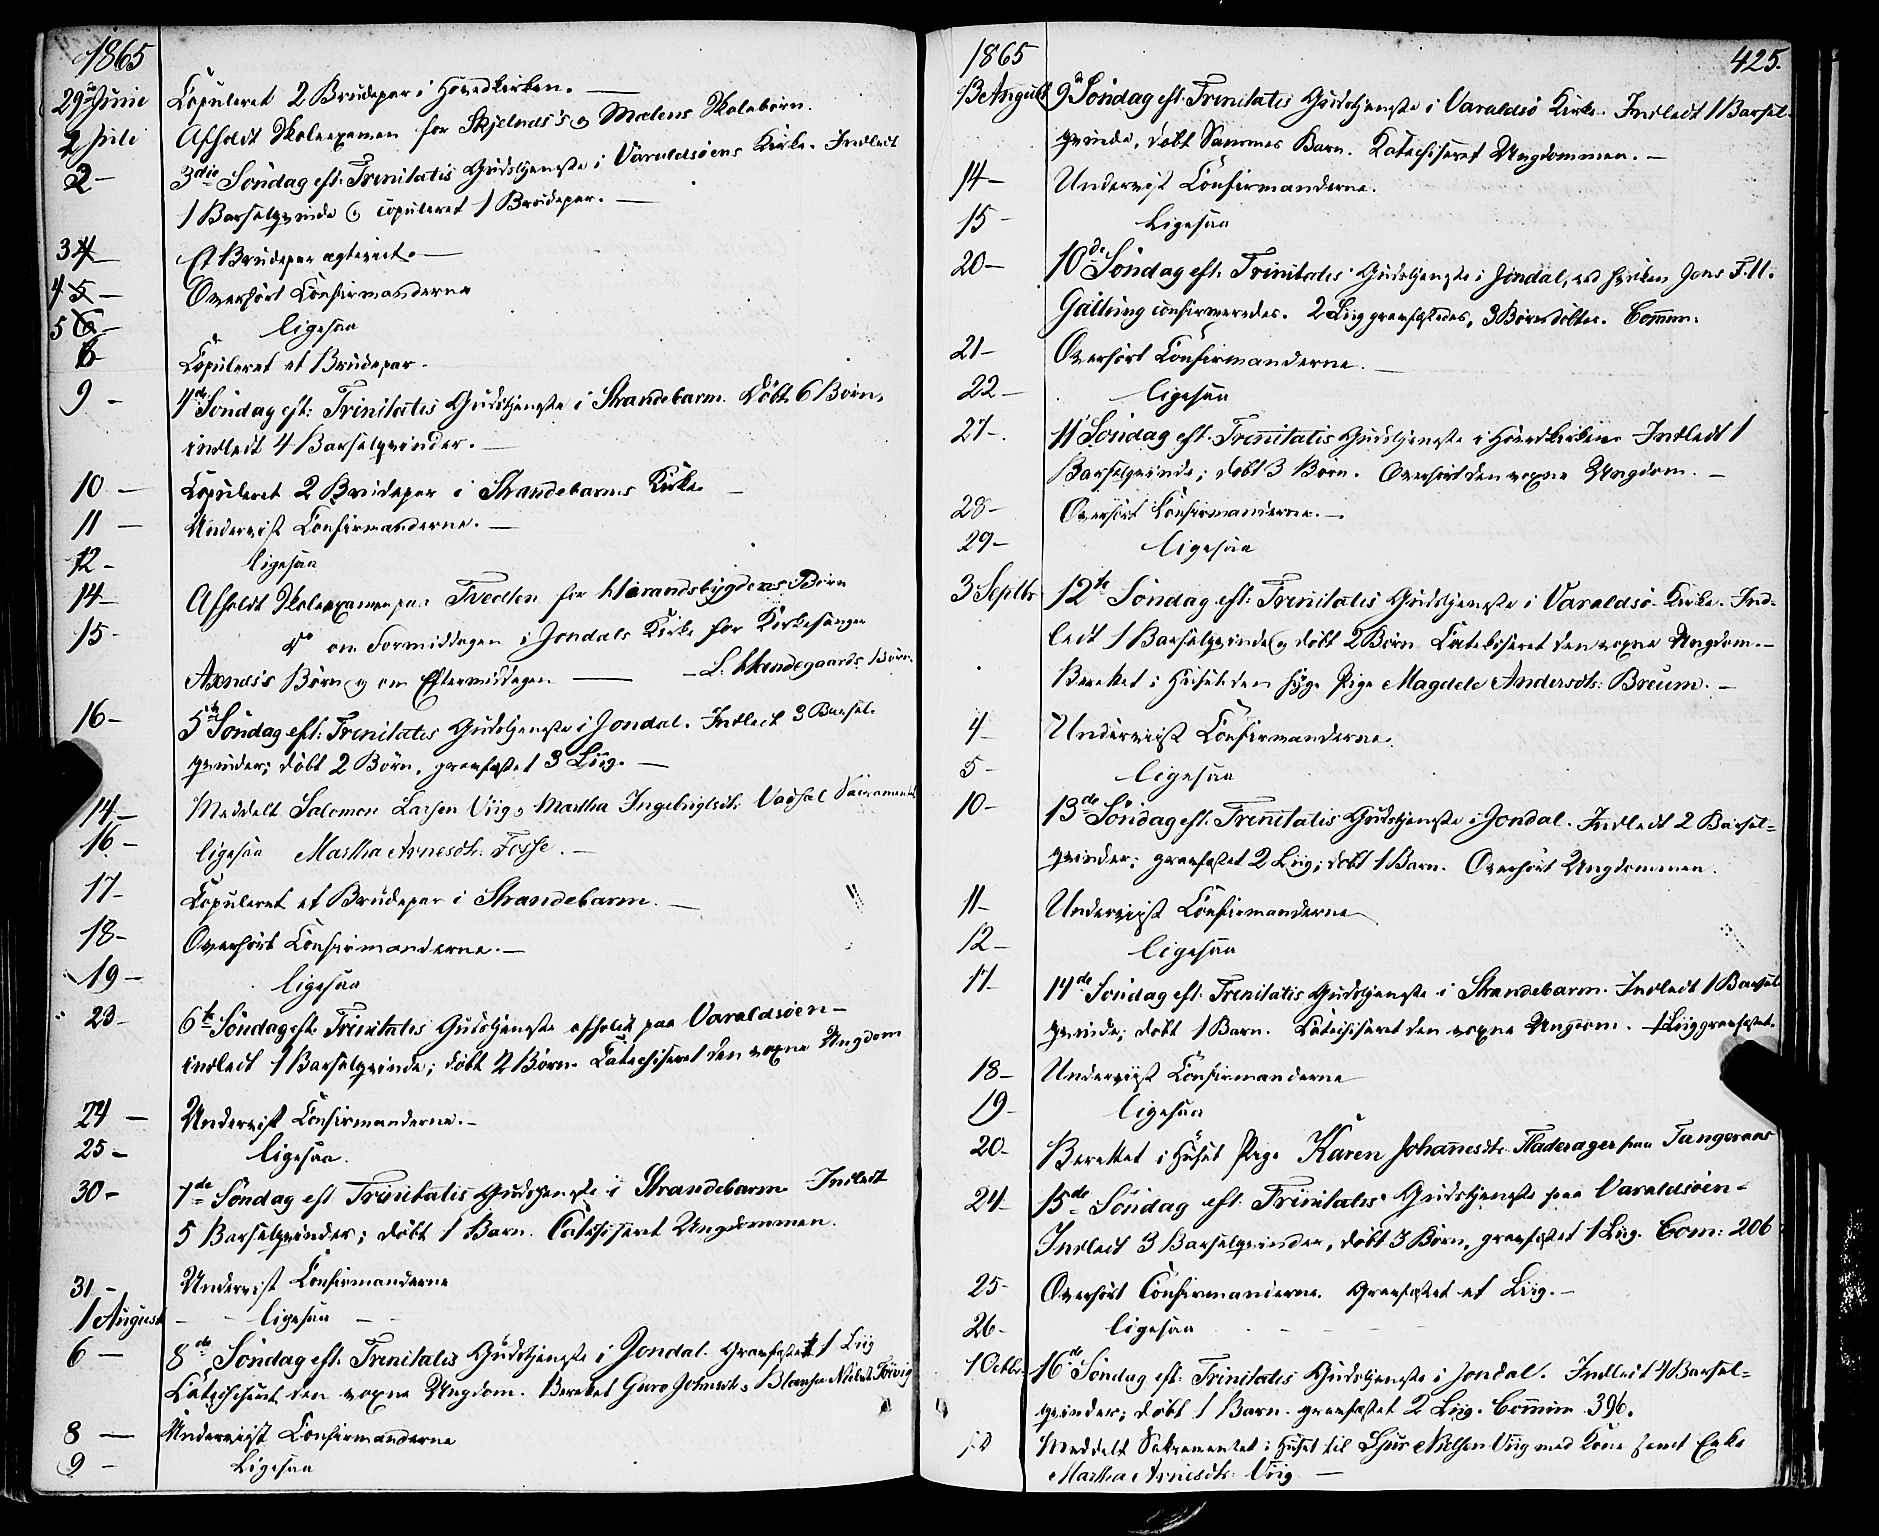 1865
29de Junie Copuleret 2 Brudepar i Hovedkirken. —
2 Juli Afholdt Skoleexamen for Skjelnæs's og Mælens Skolebørn.
2 — 3die Søndag eft: Trinitatis Gudstjeneste i Varaldsøens Kirke. Indledt
1 Barselqvinde og copuleret 1 Brudepar. —
3 4 — Et Brudepar ægteviet. —
4 5 — Overhørt Confirmanderne
5 6 — ligesaa
6 Copuleret et Brudepar.
9 — 4de Søndag eft: Trinitatis Gudstjeneste i Strandebarm. Døbt 6 Børn,
indledt 4 Barselqvinder. —
10 — Copuleret 2 Brudepar i Strandebarms Kirke —
11 — Underviist Confirmanderne. —
12 — ligesaa
14 — Afholdt Skoleexamen paa Tvedten for Børn
15 — do om Formiddagen i Jondals Kirke for Kirkesanger
Axnæs's Børn og om Eftermiddagen — — L. Børn.
16 — 5te Søndag eft: Trinitatis Gudstjeneste i Jondal. Indledt 3 Barsel-
qvinder; døbt 2 Børn, græsfæstet 3 Liig. —
14 — Meddelt Salomon Larsen Viig og Martha Ingebrigtsdt. Vadsal Sacramentet
16 — ligesaa Martha Arnesdt. Fosse. —
17 — Copuleret et Brudepar i Strandebarm. —
18 — Overhørt Confirmanderne. —
19 — ligesaa
23 — 6te Søndag eft. Trinitatis Gudstjeneste afholdt paa Varaldsøen —
indledt 1 Barselqvinde; døbt 2 Børn. Catechiseret den voxne Ungdom
24 — Underviist Confirmanderne. —
25 — ligesaa.
30 — 7de Søndag eft Trinitatis Gudstjeneste i Strandebarm Indledt
5 Barselqvinder; døbt 1 Barn. Catechiseret Ungdommen.
31 — Underviist Confirmanderne
1 August — — ligesaa — —
6 — 8de Søndag eft. Trinitatis Gudstjeneste i Jondal. Græsfæstet 1 Liig
Catechiseret den voxne Ungdom. Berettet Guro Johnsdt.
8 — Underviist Confirmanderne
9 — Ligesaa
1865 425.
13 August 9de Søndag eft. Trinitatis Gudstjeneste i Varaldsø Kirke. Indledt 1 Barsel-
qvinde, døbt Sammes Barn. Katechiseret Ungdommen. —
14 — Underviist Confirmanderne.
15 — Ligesaa
20 — 10de Søndag eft. Trinitatis Gudstjeneste i Jondal, ved hvilken Jens
confirmeredes. 2 Liig græsfæstedes, 3 Børn døbtes. Comm:
21 — Overhørt Confirmanderne. —
22 — ligesaa
27 — 11 Søndag eft. Trinitatis Gudstjeneste i Hovedkirken Indledt 1
Barselqvinde; døbt 3 Børn. Overhørt den voxne Ungdom. —
28 — Overhørt Confirmanderne. —
29 — ligesaa
3 Septbr 12te Søndag eft: Trinitatis Gudstjeneste i Varaldsø Kirke. Ind-
ledt 1 Barselqvinde og døbt 2 Børn Catechiseret den voxne Ungdom. —
Berettet i Huset den syge Pige Magdele Andersdt: Breum. —
4 — Underviist Confirmanderne.
5 — ligesaa
10 — 13de Søndag eft. Trinitatis Gudstjeneste i Jondal. Indledt 2 Barsel-
qvinder; græsfæstet 2 Liig; døbt 1 Barn. Overhørt Ungdommen.
11 — Underviist Confirmanderne
12 — ligesaa
17 — 14de Søndag eft. Trinitatis Gudstjeneste i Strandebarm. Indledt 1 Barsel
qvinde; døbt 1 Barn. Catechiseret den voxne Ungdom. — 1 Liig græsfæstet.
18 — Underviist Confirmanderne
19 — ligesaa
20 — Berettet i Huset Pige Karen Johannesdt. Fladerager paa Tangeraas
24 — 15de Søndag eft. Trinitatis Gudstjeneste paa Varaldsøen —
Indledt 3 Barselqvinder, døbt 3 Børn, græsfæstet 1 Liig. Com: 206
25 — Overhørt Confirmanderne. Græsfæstet et Liig. —
26 — ligesaa
1 Octbr. 16de Søndag eft: Trinitatis Gudstjeneste i Jondal. Indledt 4 Barsel-
qvinder; døbt 1 Barn. græsfæstet 2 Liig. Commun 396.
Meddelt Sakramentet i Huset til Sjur Nielsen Viig med Kone samt Enke
Martha Arnesdt: Viig —